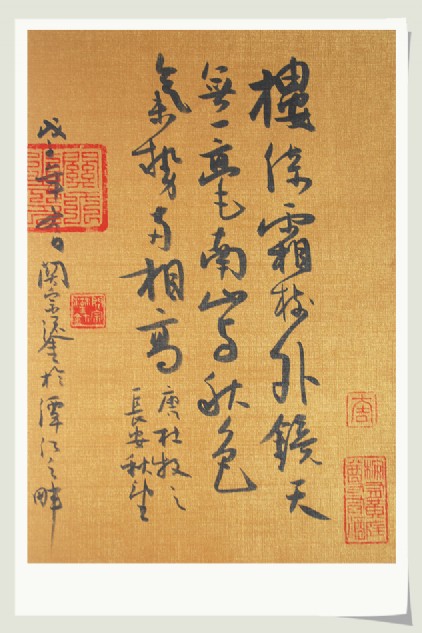 樓倚霜樹外鏡天
無一毫南山与秋色
氣勢两相高
唐杜牧之
長安秋望
年関宗於潭江之畔